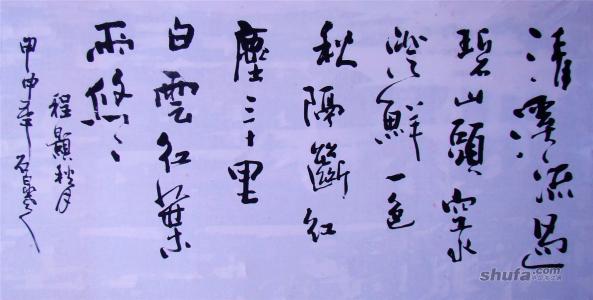 清溪流過
碧山頭空水
澄鮮一色
秋隔斷紅
塵三十里
白雲紅葉
兩悠々
程顥秋月
甲申年
shufa.com